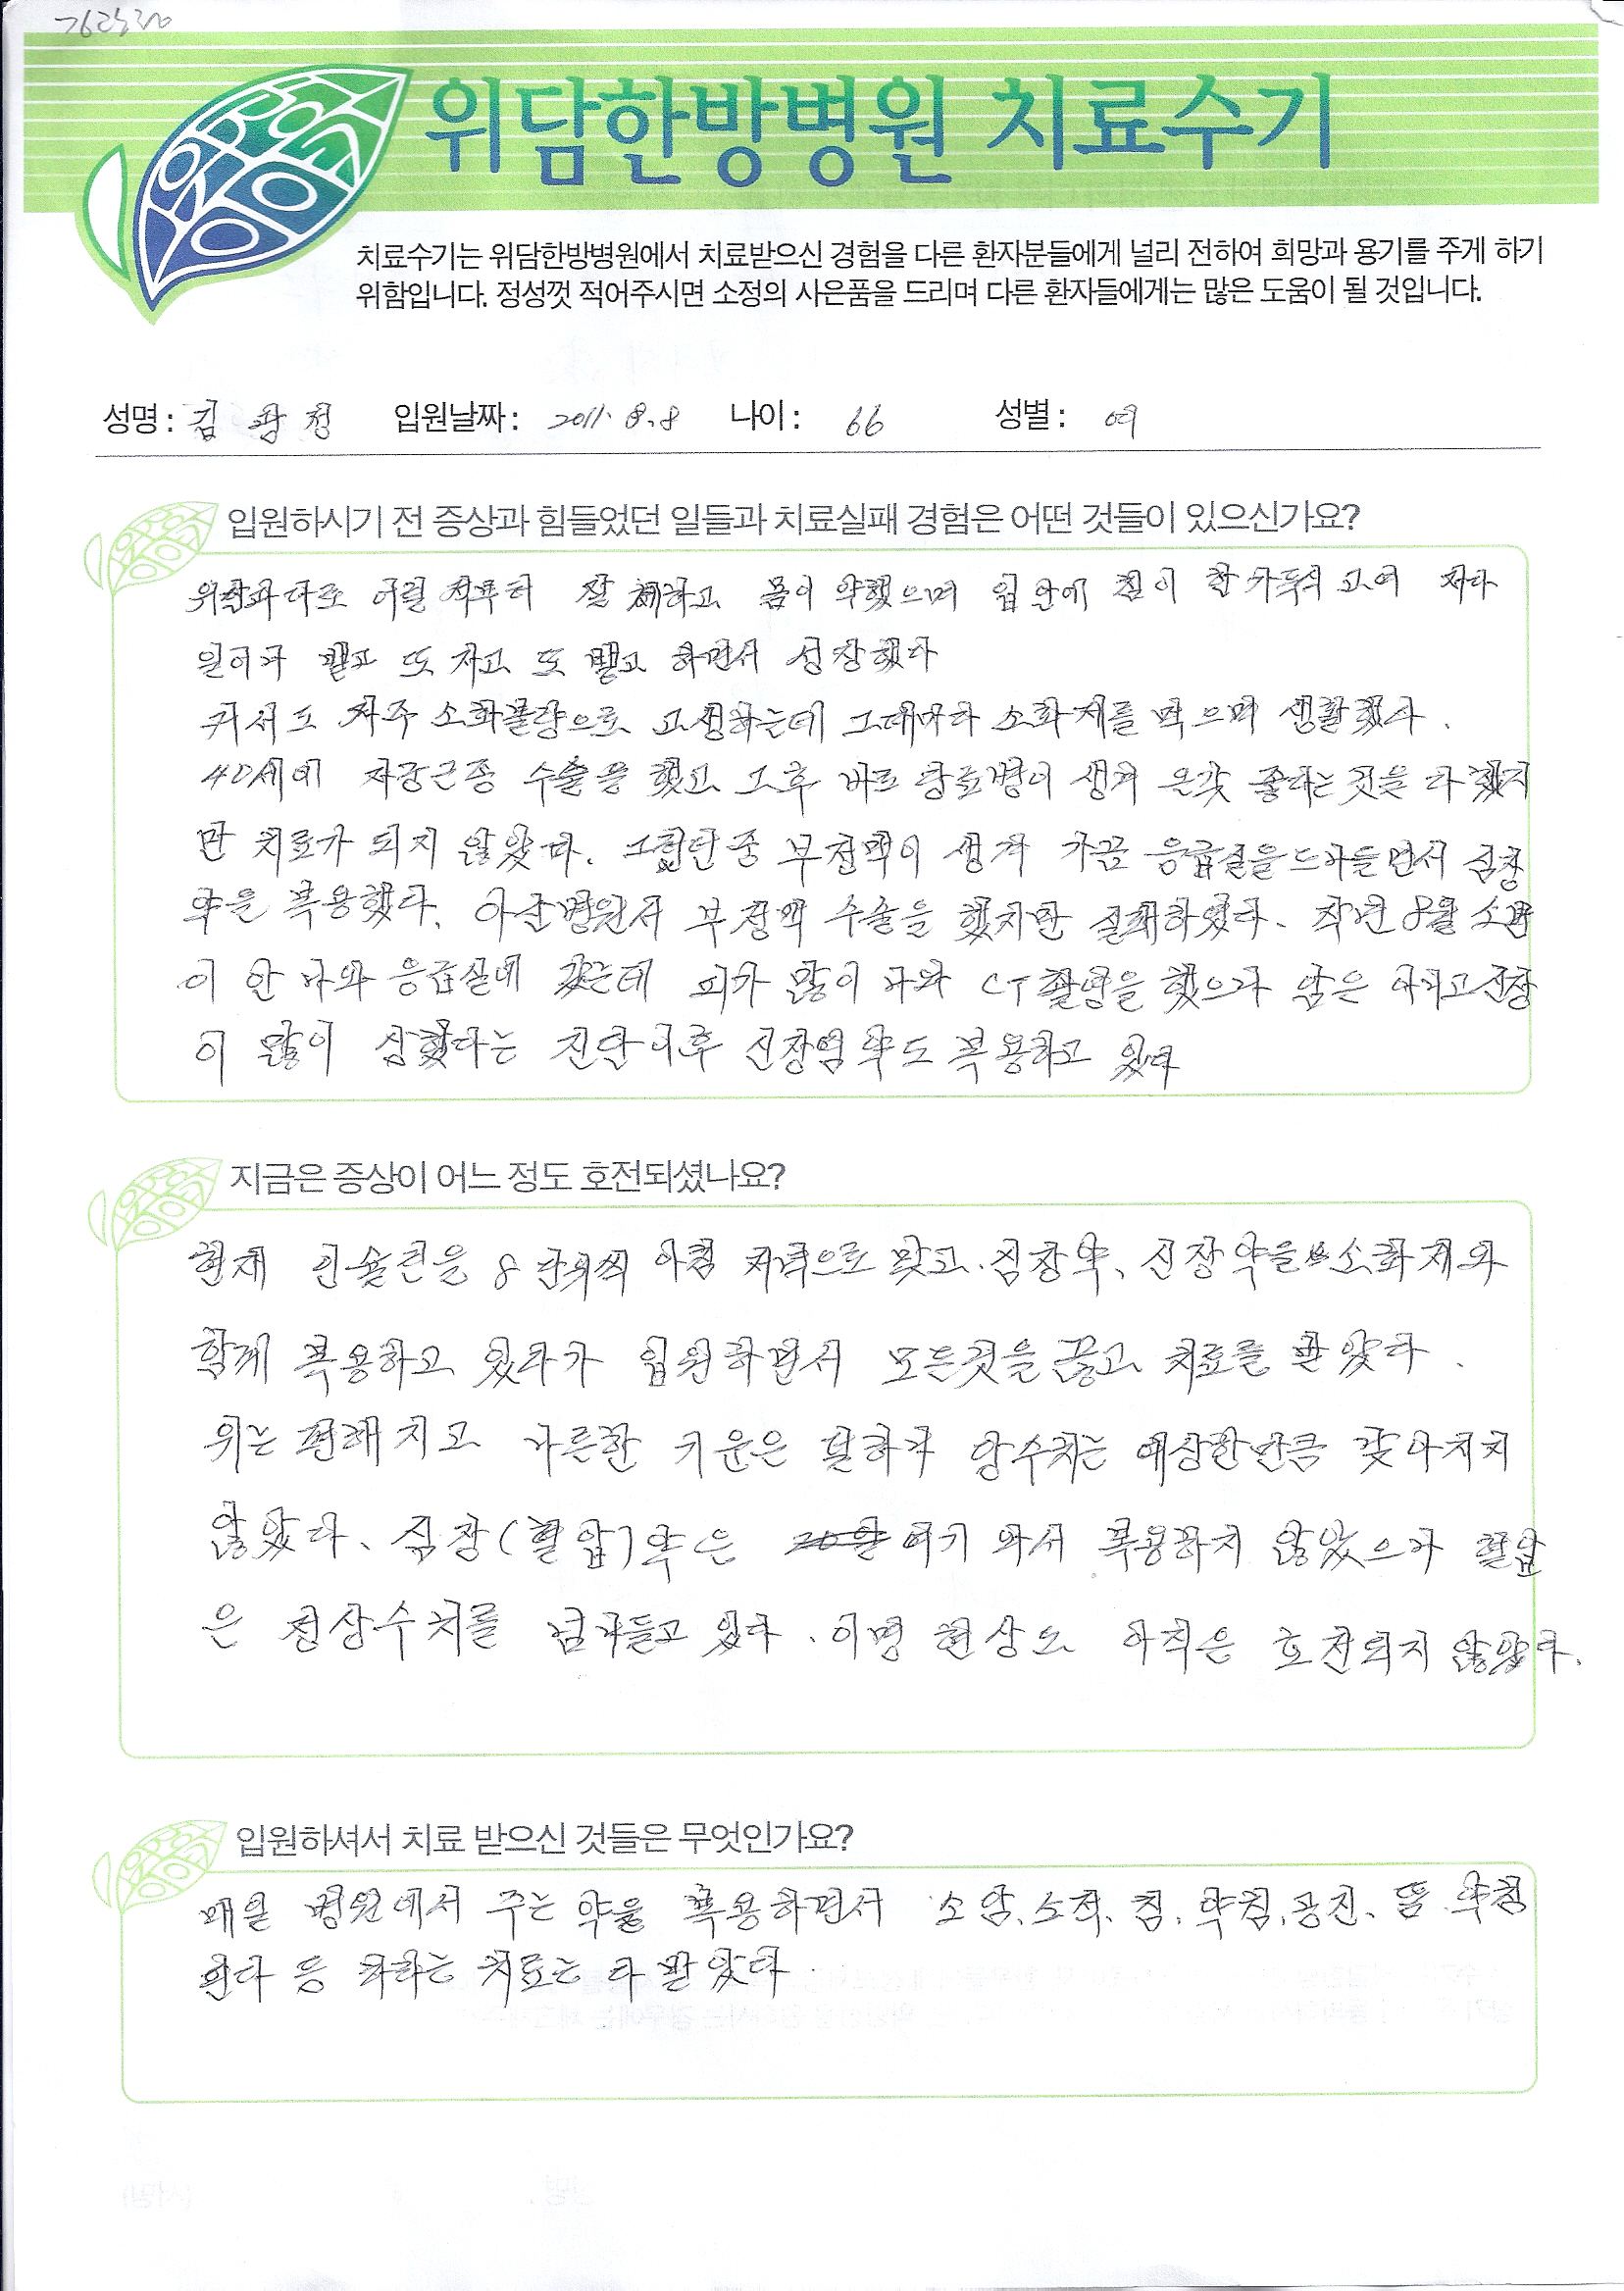 위담한방병원 치료수기
치료수기는 위담한방병원에서 치료받으신 경험을 다른 환자분들에게 널리 전하여 희망과 용기를 주게 하기
위함입니다. 정성껏 적어주시면 소정의 사은품을 드리며 다른 환자들에게는 많은 도움이 될 것입니다.
성명 : 김 정 입원날짜 : 2011. 8. 8 나이 : 66 성별 : 여
입원하시기 전 증상과 힘들었던 일들과 치료실패 경험은 어떤 것들이 있으신가요?
어릴 적부터 잘 체하고 몸이 약했으며 입안에 침이 한가득씩 고여 자다
일어나 뱉고 또 자고 또 뱉고 하면서 성장했다
커서도 자주 소화불량으로 고생하는데 그때마다 소화제를 먹으며 생활했다.
40세에 자궁근종 수술을 했고 그후 바로 당료병이 생겨 온갖 좋다는 것을 다 했지
만 치료가 되지 않았다. 부정맥이 생겨 가끔 응급실을 드나들면서 심장
약을 복용했다. 아산병원서 부정맥 수술을 했지만 실패하였다. 작년 8월 소변
이 안 나와 응급실에 갔는데 피가 많이 나와 CT촬영을 했으나 암은 아니고 신장
이 많이 상했다는 진단이후 신장염 약도 복용하고 있다
지금은 증상이 어느 정도 호전되셨나요?
현재 인슐린을 8단위씩 아침 저녁으로 맞고. 심장약, 신장약을 소화제와
함께 복용하고 있다가 입원하면서 모든것을 끊고 치료를 받았다.
위는 편해지고 나른한 기운은 덜하나 당수치는 예상한만큼 낮아지지
않았다. 심장(혈압)약은 여기 와서 복용하지 않았으나 혈압
은 정상수치를 넘나들고 있다. 이명 현상도 아직은 호전되지 않았다.
입원하셔서 치료 받으신 것들은 무엇인가요?
매일 병원에서 주는 약을 복용하면서 소암, 소적, 침, 약침, 공진, 뜸 약침
등 하라는 치료는 다 받았다.